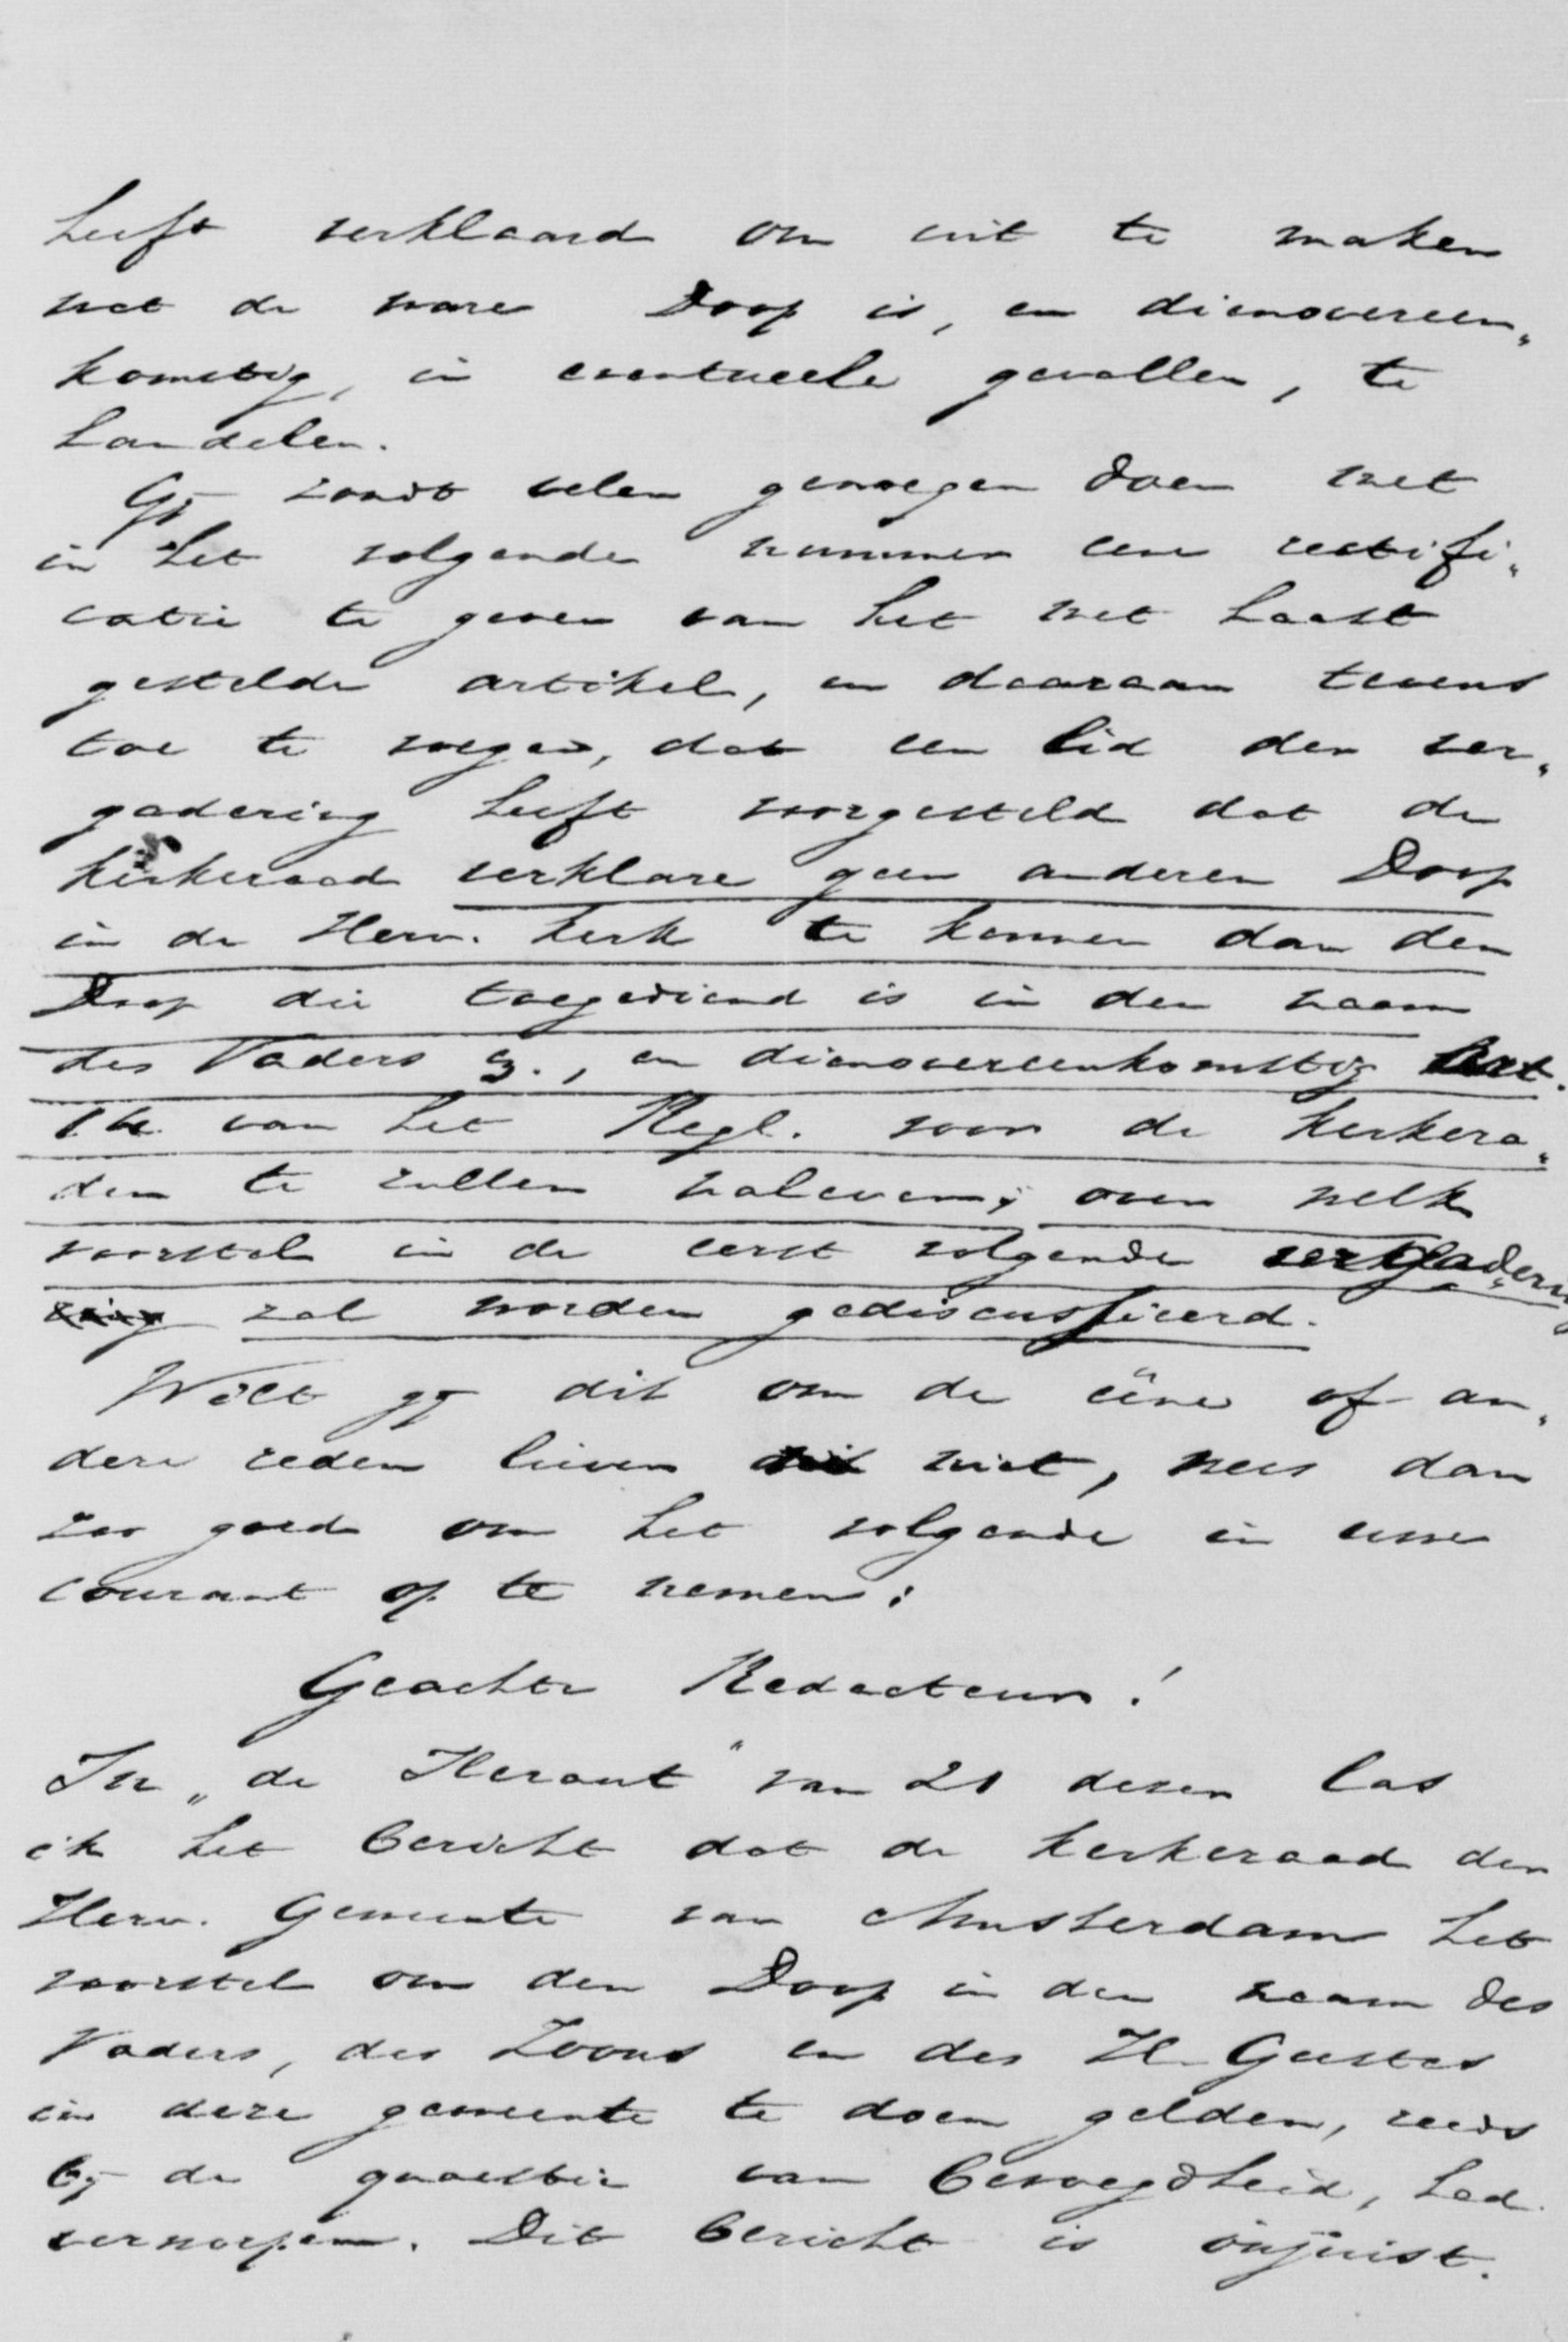 heeft verklaard om uit te maken
wat de ware Doop is, en dienovereen„
komstig, in eventueele gevallen, te
handelen.
Gij zoudt velen genoegen doen met
in het volgende nummer eene rectifi„
catie te geven van het met haast
gestelde artikel, en daaraan tevens
toe te voegen, dat een lid der ver„
gadering heeft voorgesteld dat de
kerkeraad verklare geen anderen Doop
in de Herv. Kerk te kennen dan den
Doop die toegediend is in den naam
des Vaders z., en dienovereenkomstig Art.
14 van het Regl. voor de Kerkera„
den te zullen naleven; over welk
voorstel in de eerst volgende vergadering
zal worden gediscussieerd.
Wilt gij dit om de ééne of an„
dere reden liever niet, wees dan
zoo goed om het volgende in uwe
courant op te nemen:
Geachte Redacteur!
In „de Heraut" van 21 dezer las
ik het bericht dat de kerkeraad der
Herv. Gemeente van Amsterdam het
voorstel om den Doop in den naam des
Vaders, des Zoons en des H. Geestes
in deze gemeente te doen gelden, reeds
bij de quaestie van bevoegdheid, had
verworpen. Dit bericht is onjuist.